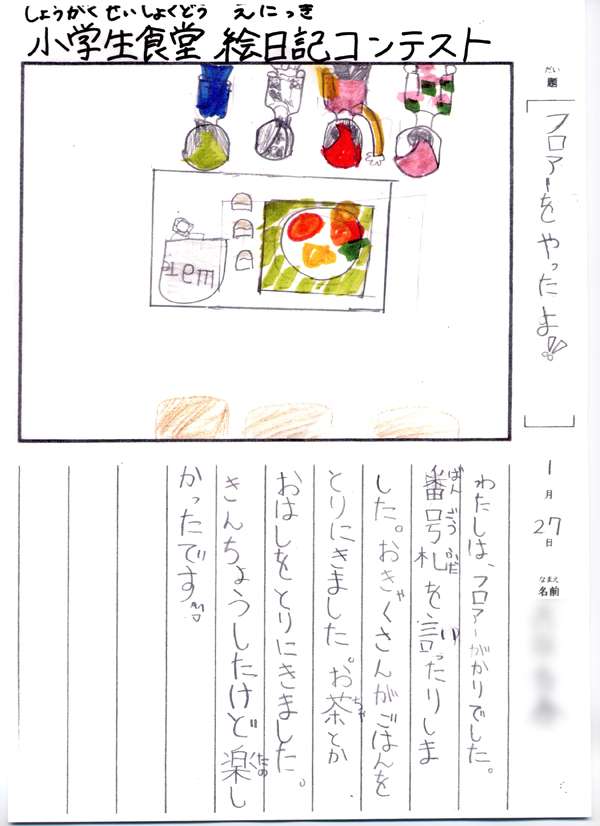 しょうがくせいしょくどう えにっき
小学生食堂 絵日記コンテスト
だい
題
フロアーをやったよ!!
1月27日
なまえ
名前
わたしは、フロアーがかりでした。
ばんごうふだ い
番号札を言ったりしま
した。おきゃくさんがごはんを
とりにきました。お茶とか
ちゃ
おはしをとりにきました。
きんちょうしたけど楽し
たの
かったです。